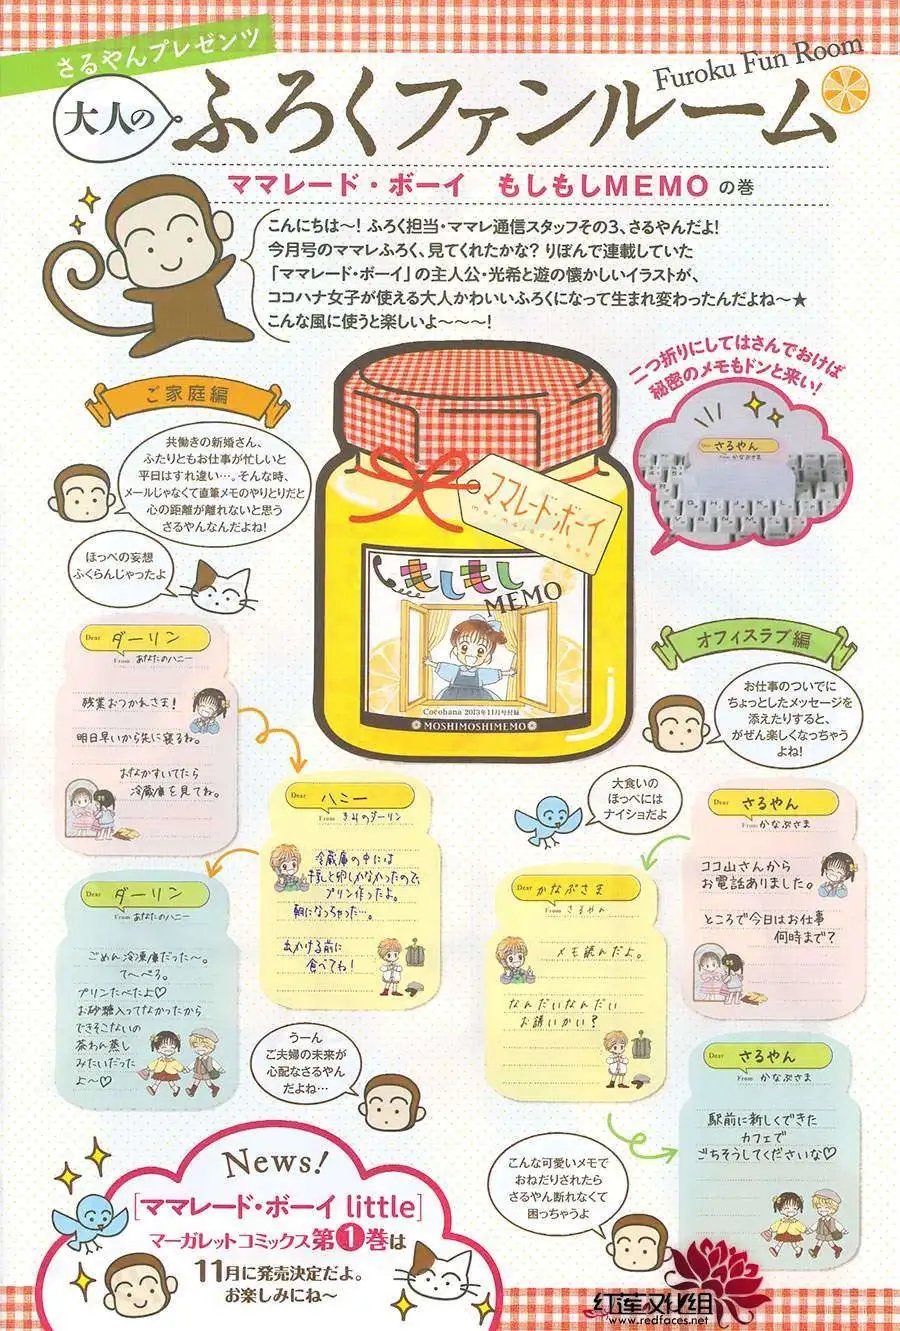 さるやんプレゼンツ
大人の
ふろくファンルーム
Furoku Fun Room
ママレード・ボーイ もしもしMEMO の巻
こんにちは〜! ふろく担当・ママレ通信スタッフその3、さるやんだよ!
今月号のママレふろく、見てくれたかな? りぼんで連載していた
「ママレード・ボーイ」の主人公・光希と遊の懐かしいイラストが、
ココハナ女子が使える大人かわいいふろくになって生まれ変わったんだよね〜★
こんな風に使うと楽しいよ〜〜〜!
二つ折りにしてはさんでおけば
秘密のメモもドンと来い!
Dear さるやん
From かなぶさま
ママレード・ボーイ
もしもし
MEMO
Cocohana 2013年11月号付録
MOSHIMOSHIMEMO
ご家庭編
共働きの新婚さん、
ふたりともお仕事が忙しいと
平日はすれ違い…。そんな時、
メールじゃなくて直筆メモのやりとりだと
心の距離が離れないと思う
さるやんなんだよね!
ほっぺの妄想
ふくらんじゃったよ
Dear ダーリン
From あなたのハニー
残業おつかれさま!
明日早いから先に寝るね。
おなかすいてたら
冷蔵庫を見てね。
Dear ハニー
From きみのダーリン
冷蔵庫の中には
牛乳と卵しかなかったので、
プリン作ったよ。
朝になっちゃった…。
出かける前に
食べてね!
Dear ダーリン
From あなたのハニー
ごめん冷凍庫だった〜。
て〜へろ。
プリンたべたよ♡
お砂糖入ってなかったから
できそこないの
茶わん蒸し
みたいだった
よ〜♡
うーん
ご夫婦の未来が
心配なさるやん
だよね…
オフィスラブ編
お仕事のついでに
ちょっとしたメッセージを
添えたりすると、
がぜん楽しくなっちゃう
よね!
大食いの
ほっぺには
ナイショだよ
Dear さるやん
From かなぶさま
ココ山さんから
お電話ありました。
ところで今日はお仕事
何時まで?
Dear かなぶさま
From さるやん
メモ読んだよ。
なんだいなんだい
お誘いかい?
Dear さるやん
From かなぶさま
駅前に新しくできた
カフェで
ごちそうしてくださいな♡
こんな可愛いメモで
おねだりされたら
さるやん断れなくて
困っちゃうよ
News!
[ママレード・ボーイ little]
マーガレットコミックス第1巻は
11月に発売決定だよ。
お楽しみにね〜
红莲汉化组
www.redfaces.net